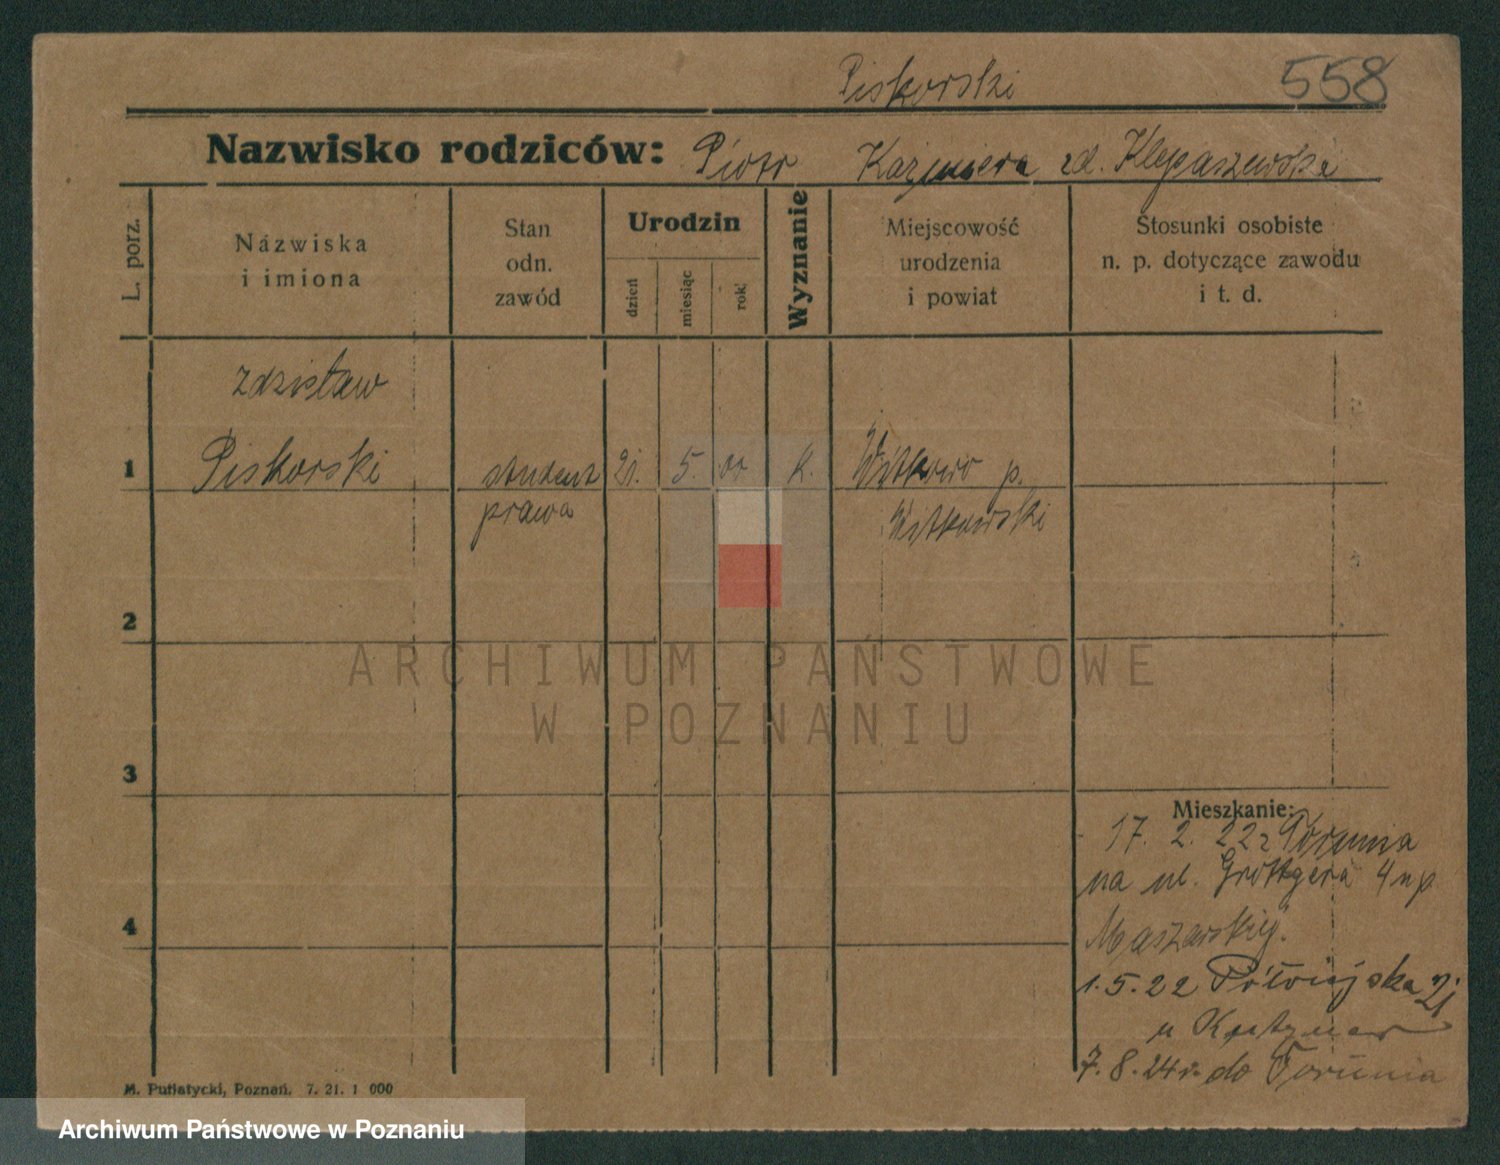 Piskorski 558
Nazwisko rodziców: Piotr Kazimiera zd. Klepaszewska
L. porz.
Nazwiska
i imiona
Stan
odn.
zawód
Urodzin
dzień
miesiąc
rok
Wyznanie
Miejscowość
urodzenia
i powiat
Stosunki osobiste
n. p. dotyczące zawodu
i t. d.
Zdzisław
1 Piskorski student 21. 5. 00 k. Witkowo p.
prawa Witkowski
2
ARCHIWUM PAŃSTWOWE
W POZNANIU
3
Mieszkanie:
17. 2. 22 z Torunia
na ul. Grottgera 4 u p
4 Maszewskiej.
1. 5. 22 Półwiejska 21
u
7. 8. 24 r. do Torunia
M. Putiatycki, Poznań. 7. 21. 1 000
Archiwum Państwowe w Poznaniu